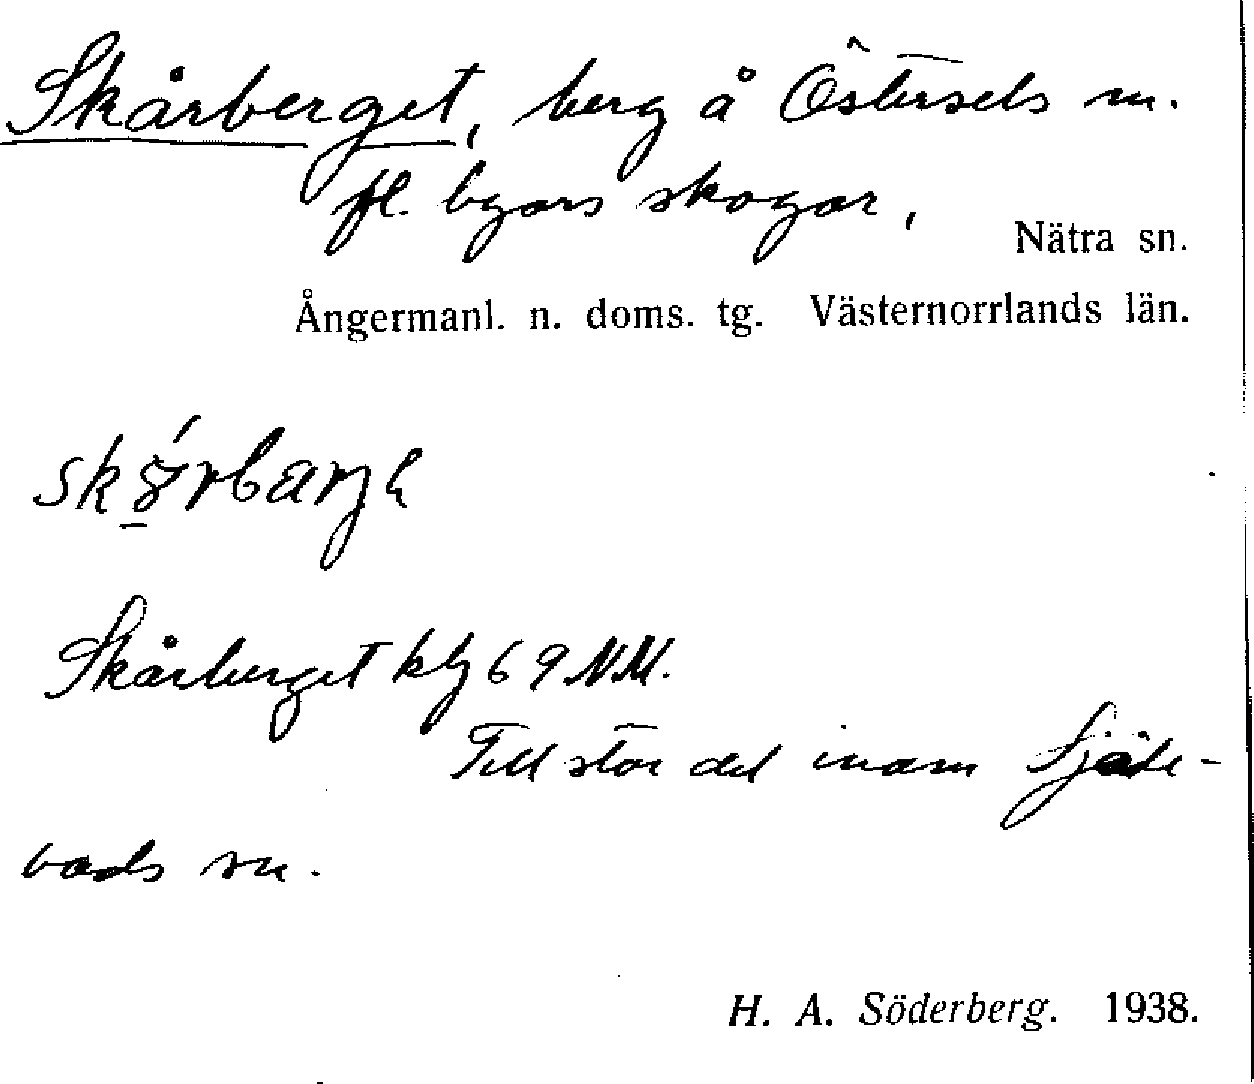 Skårberget, berg å Östersels m.
fl. byars skogar,
Nätra sn.
Ångermanl. n. doms. tg. Västernorrlands län.
Skårberget kbl 69 NM.
Till stor del inom Själe-
vads sn.
H. A. Söderberg. 1938.